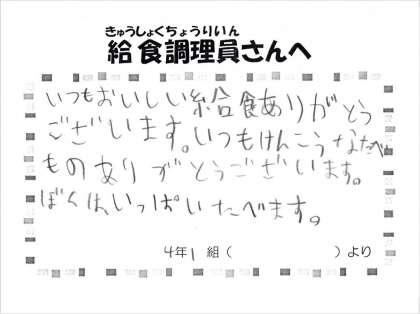 きゅうしょくちょうりいん
給食調理員さんへ
いつもおいしい給食ありがとう
ございます。いつもけんこうなたべ
ものありがとうございます。
ぼくは、いっぱいたべます。
4年1組( )より